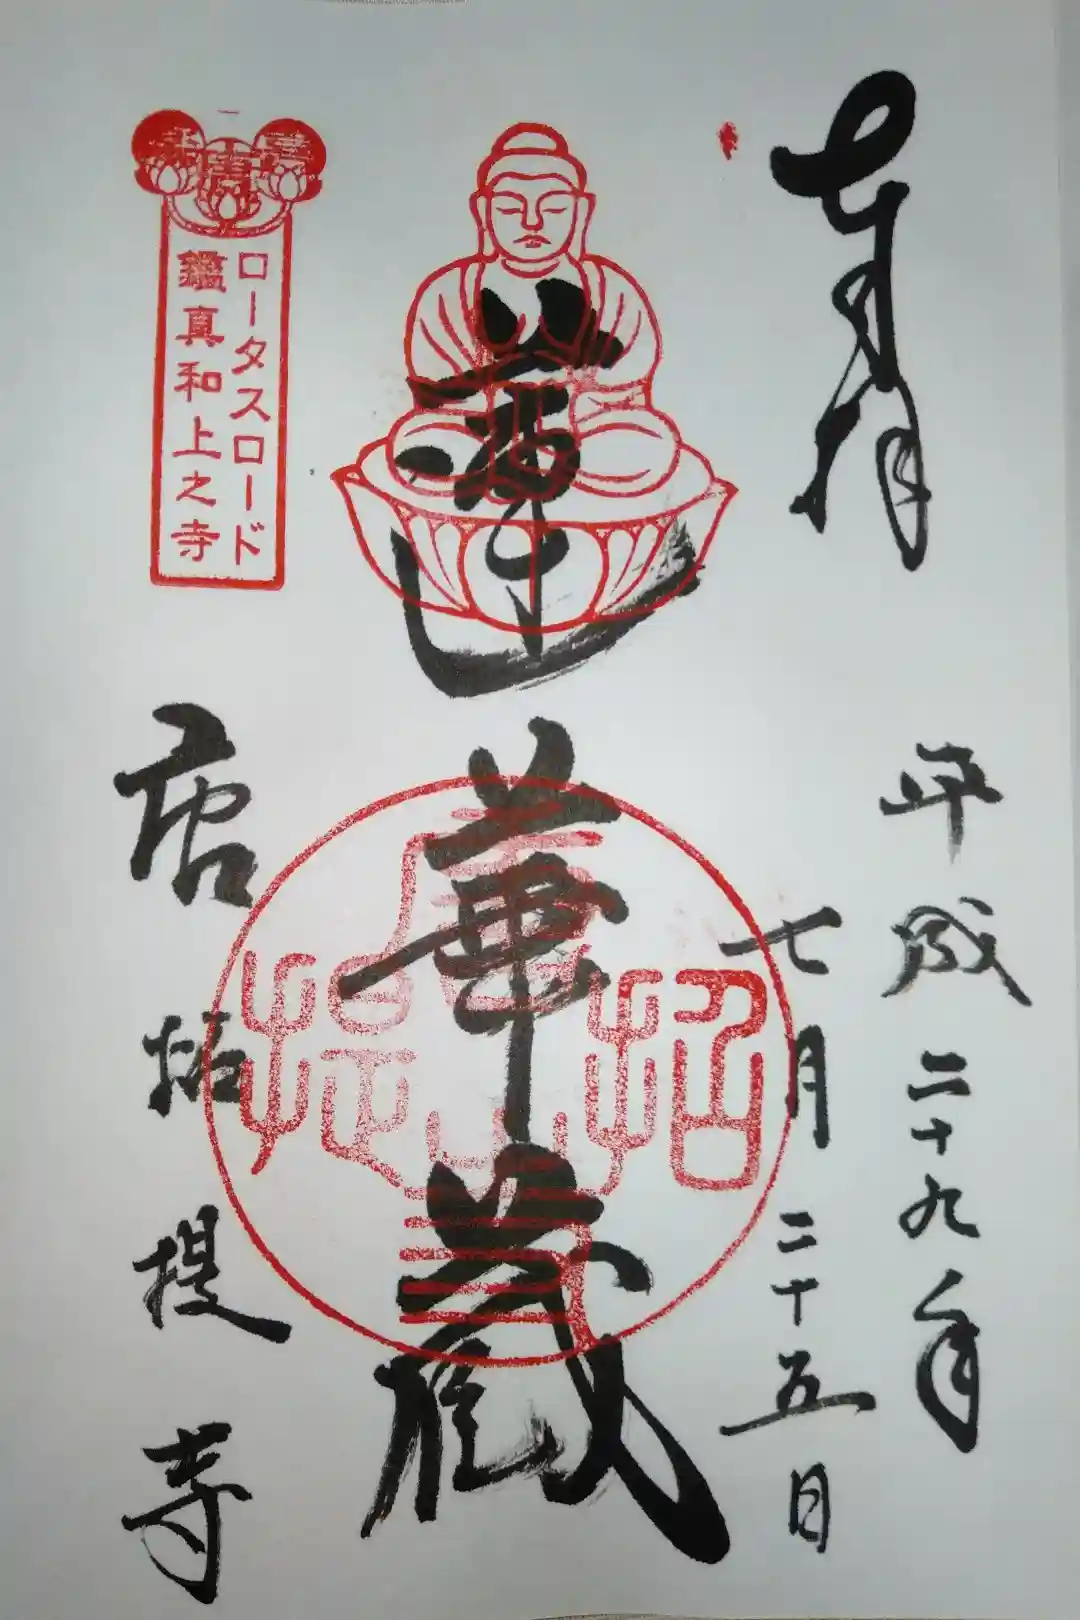 奉拝
平成二十九年
七月二十五日
蓮華蔵
唐招提寺
ロータスロード
鑑真和上之寺